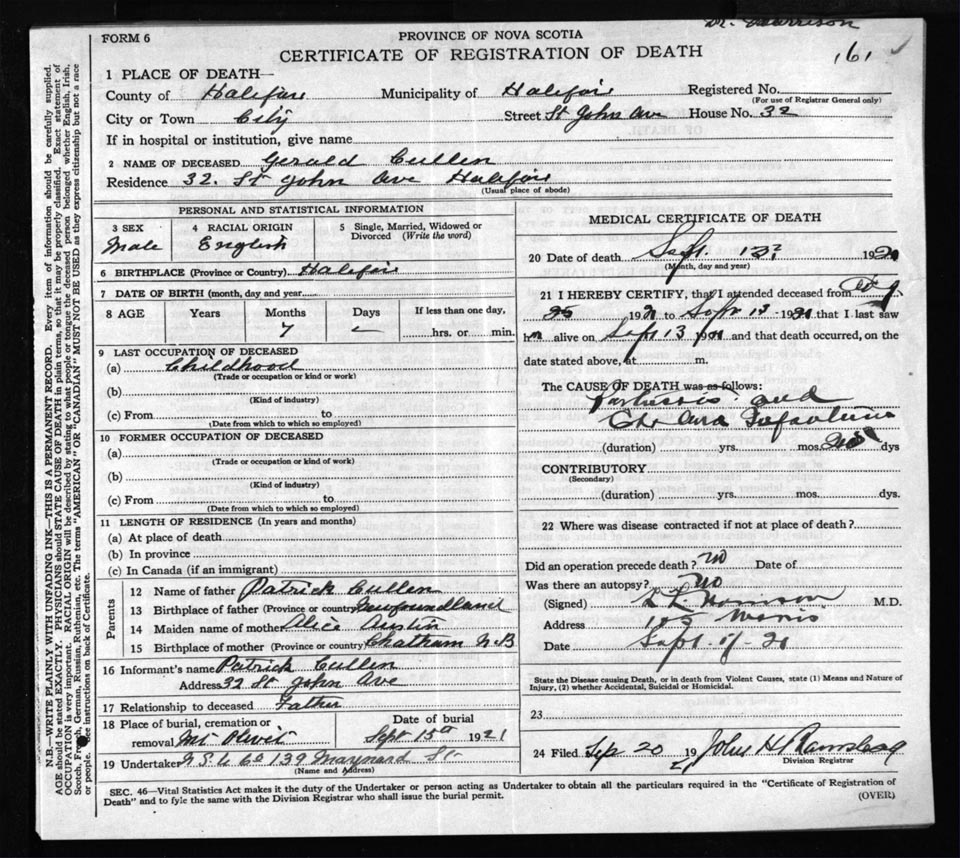 Dr. Morrison
FORM 6
PROVINCE OF NOVA SCOTIA
CERTIFICATE OF REGISTRATION OF DEATH
161
1 PLACE OF DEATH—
County of Halifax Municipality of Halifax Registered No.
(For use of Registrar General only)
City or Town City Street St John Ave House No. 32
If in hospital or institution, give name
2 NAME OF DECEASED Gerald Cullen
Residence 32. St John Ave Halifax
(Usual place of abode)
PERSONAL AND STATISTICAL INFORMATION
3 SEX 4 RACIAL ORIGIN 5 Single, Married, Widowed or Divorced (Write the word)
Male English
6 BIRTHPLACE (Province or Country) Halifax
7 DATE OF BIRTH (month, day and year
8 AGE Years Months Days If less than one day,
7 — hrs. or min.
9 LAST OCCUPATION OF DECEASED
(a) Childhood
(Trade or occupation or kind or work)
(b)
(Kind of industry)
(c) From to
(Date from which to which so employed)
10 FORMER OCCUPATION OF DECEASED
(a)
(Trade or occupation or kind of work)
(b)
(Kind of industry)
(c) From to
(Date from which to which so employed)
11 LENGTH OF RESIDENCE (In years and months)
(a) At place of death
(b) In province
(c) In Canada (if an immigrant)
Parents
12 Name of father Patrick Cullen
13 Birthplace of father (Province or country Newfoundland
14 Maiden name of mother Alice Austin
15 Birthplace of mother (Province or country) Chatham N B
16 Informant's name Patrick Cullen
Address 32 St John Ave
17 Relationship to deceased Father
18 Place of burial, cremation or Date of burial
removal Mt Olivet Sept 15th 1921
19 Undertaker N.S.U Co 139 Maynard St
(Name and Address)
MEDICAL CERTIFICATE OF DEATH
20 Date of death Sept. 13 1921
(Month, day and year)
21 I HEREBY CERTIFY, that I attended deceased from Aug
25 1921 to Sept 13 1921 that I last saw
him alive on Sept 13 1921 and that death occurred, on the
date stated above, at m.
The CAUSE OF DEATH was as follows:
Pertussis and
Infantum
(duration) yrs. mos. dys
CONTRIBUTORY
(Secondary)
(duration) yrs. mos. dys.
22 Where was disease contracted if not at place of death?
Did an operation precede death? no Date of
Was there an autopsy? no
(Signed) M.D.
Address Morris
Date Sept 21
State the Disease causing Death, or in death from Violent Causes, state (1) Means and Nature of
Injury, (2) whether Accidental, Suicidal or Homicidal.
23
24 Filed Sep 20 1921 John H
Division Registrar
SEC. 46—Vital Statistics Act makes it the duty of the Undertaker or person acting as Undertaker to obtain all the particulars required in the "Certificate of Registration of
Death" and to fyle the same with the Division Registrar who shall issue the burial permit.
(OVER)
N.B.—WRITE PLAINLY WITH UNFADING INK—THIS IS A PERMANENT RECORD. Every item of information should be carefully supplied.
AGE should be stated EXACTLY. PHYSICIANS should STATE CAUSE OF DEATH in plain terms, so that it may be properly classified. Exact statement of
OCCUPATION is very important. RACIAL ORIGIN will be described by stating to what people or tongue the deceased person belonged whether English, Irish,
Scotch, French, German, Russian, Ruthenian, etc. The terms "AMERICAN" OR "CANADIAN" MUST NOT BE USED as they express citizenship but not a race
or people. See instructions on back of Certificate.